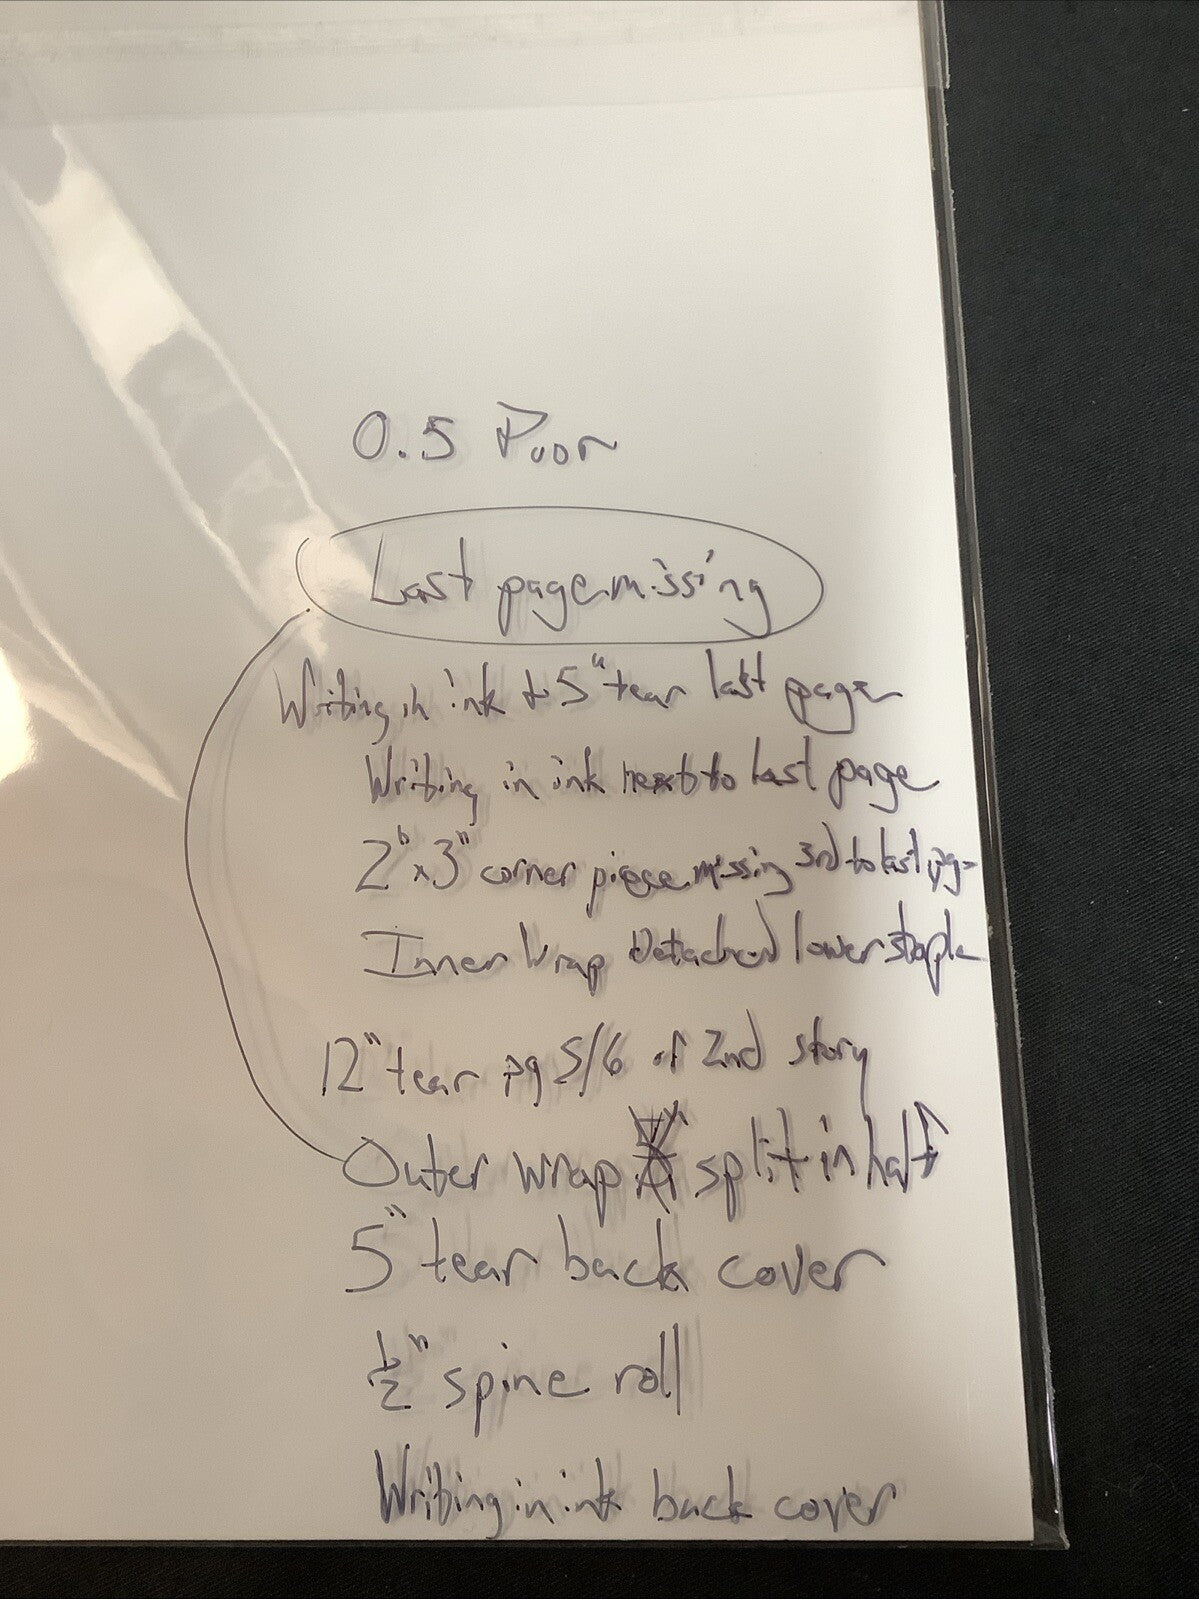 0.5 Poor
Last page missing
Writing in ink + 5" tear last page
Writing in ink next to last page
2" x 3" corner piece missing 3rd to last pg
Inner Wrap Detached lower staple
12" tear pg 5/6 of 2nd story
Outer wrap split in half
5" tear back cover
½" spine roll
Writing in ink back cover